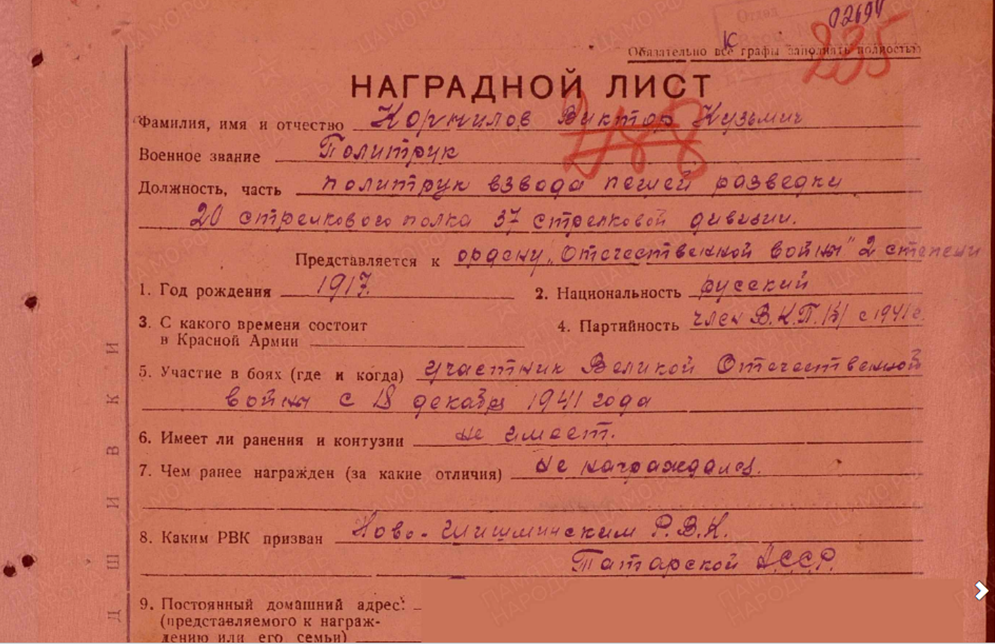 02694
235
Отдел
Обязательно все графы заполнять полностью
К
НАГРАДНОЙ ЛИСТ
Фамилия, имя и отчество Корнилов Виктор Кузьмич
Военное звание Политрук
Должность, часть политрук взвода пешей разведки
20 стрелкового полка 37 стрелковой дивизии.
Представляется к ордену „Отечественной войны" 2 степени
1. Год рождения 1917.
2. Национальность русский
3. С какого времени состоит
в Красной Армии
4. Партийность член В.К.П./б/ с 1941 г.
5. Участие в боях (где и когда) участник Великой Отечественной
войны с 18 декабря 1941 года
6. Имеет ли ранения и контузии не имеет.
7. Чем ранее награжден (за какие отличия) не награждался.
8. Каким РВК призван Ново-Шишминским Р.В.К.
Татарской А.С.С.Р.
9. Постоянный домашний адрес:
(представляемого к награж-
дению или его семьи)
ДШИВКИ